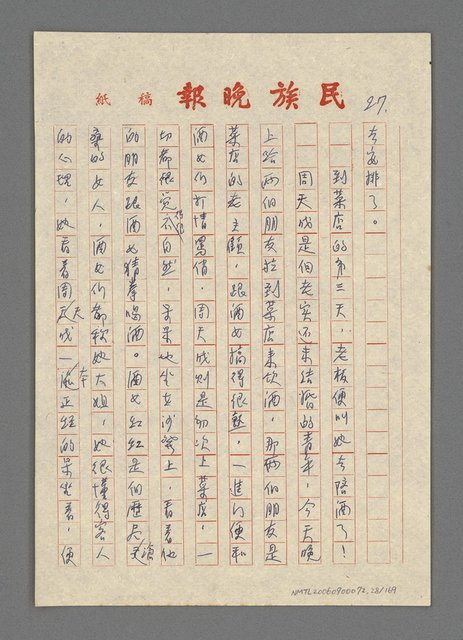 民族晚報 稿紙
27.
去安排了。
到菜店的第三天，老板便叫她去陪酒了！
周天成是個老實还未結婚的青年，今天晚
上給两個朋友拉到菜店来飲酒，那两個朋友是
菜店的老主顧，跟酒女搞得很熟，一進门便和
酒女们打情罵俏，周天成則是初次上菜店，一
切都很覚不自然，呆呆地坐在沙發上，看着他
的朋友跟酒女猜拳喝酒。酒女红红是個歷尽滄
桑的女人，酒女们都称她大姐，她很懂得客人
的心理，她看着周天成一本正經的呆坐着，便
NMTL20060900072, 28/169